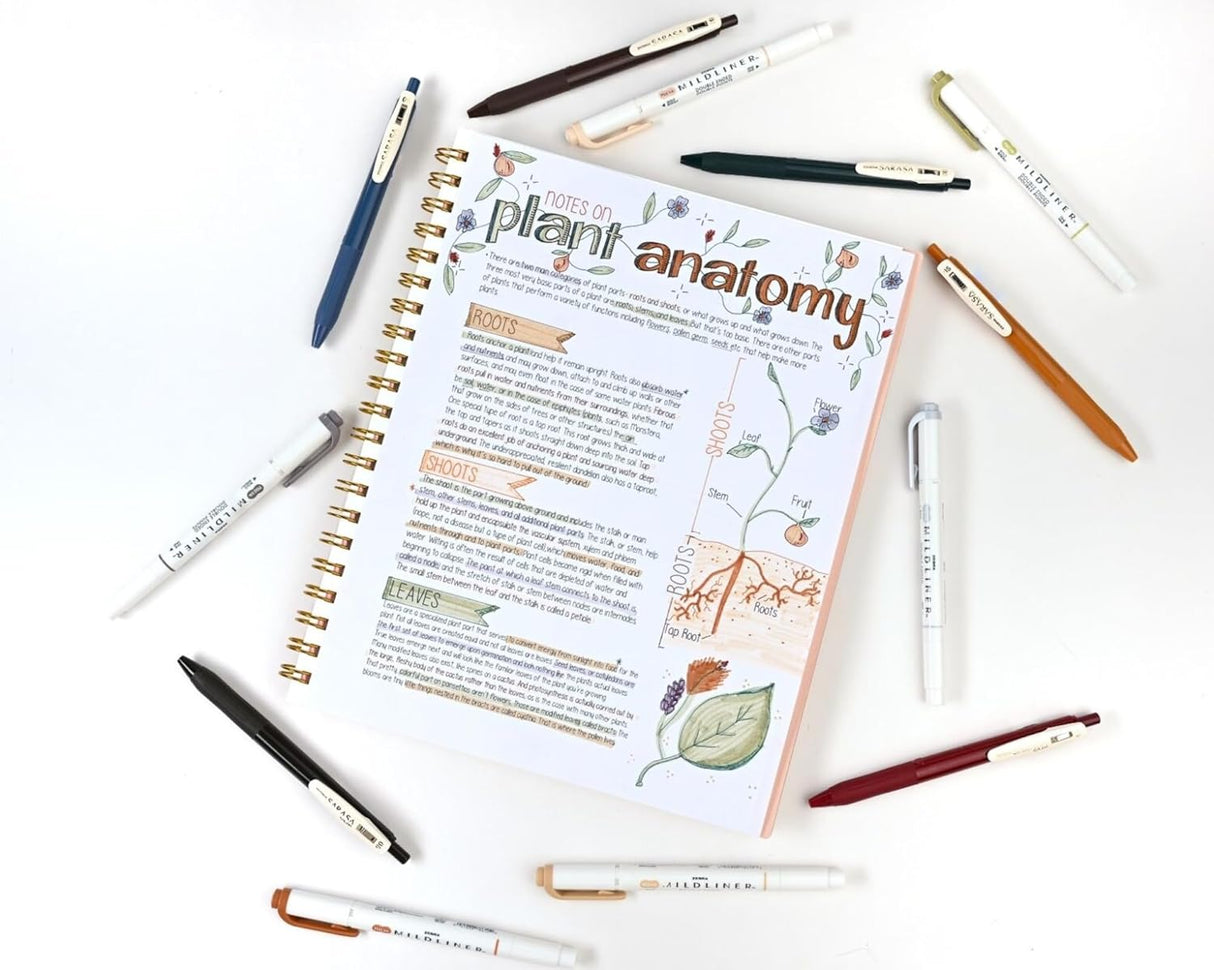 NOTES ON
plant anatomy
• There are two main categories of plant parts- roots and shoots, or what grows up and what grows down. The
three most very basic parts of a plant are roots, stems, and leaves. But that's too basic. There are other parts
of plants that perform a variety of functions including flowers, pollen, germ, seeds etc. that help make more
plants.
ROOTS
Roots anchor a plant and help it remain upright. Roots also absorb water*
and nutrients and may grow down, attach to and climb up walls or other
surfaces, and may even float in the case of some water plants. Fibrous
roots pull in water and nutrients from their surroundings, whether that
be soil, water, or in the case of epiphytes (plants, such as Monstera,
that grow on the sides of trees or other structures) the air.
One special type of root is a tap root. This root grows thick and wide at
the top and tapers as it shoots straight down deep into the soil. Tap
roots do an excellent job of anchoring a plant and sourcing water deep
underground. The underappreciated, resilient dandelion also has a taproot,
which is why it's so hard to pull out of the ground!
SHOOTS
The shoot is the part growing above ground and includes the stalk or main
* stem, other stems, leaves, and all additional plant parts. The stalk, or stem, help
hold up the plant and encapsulate the vascular system, xylem and phloem
(nope, not a disease but a type of plant cell) which moves water, food, and
nutrients through and to plant parts. Plant cells become rigid when filled with
water. Wilting is often the result of cells that are depleted of water and
beginning to collapse. The point at which a leaf stem connects to the shoot is
called a node, and the stretch of stalk or stem between nodes are internodes.
The small stem between the leaf and the stalk is called a petiole.
LEAVES
Leaves are a specialized plant part that serves to convert energy from sunlight into food for the
plant. Not all leaves are created equal and not all leaves are leaves. Seed leaves, or cotyledons are
The first set of leaves to emerge upon germination and look nothing like the plants actual leaves.
True leaves emerge next and will look like the familiar leaves of the plant you're growing.
Many modified leaves also exist, like spines on a cactus. And photosynthesis is actually carried out by
The large, fleshy body of the cactus rather than the leaves, as is the case with many other plants.
That pretty, colorful part on poinsettias aren't flowers. Those are modified leaves called bracts. The
blooms are tiny little things nested in the bracts are called cyathia. That is where the pollen lives.
SHOOTS
Flower
Leaf
Stem
Fruit
ROOTS
Roots
Tap Root
SARASA
ZEBRA MILDLINER
DOUBLE ENDED
SARASA
SARASA
MILDLINER
DOUBLE ENDED
SARASA
MILDLINER
MILDLINER
SARASA
SARASA
ZEBRA
MILDLINER
MILDLINER